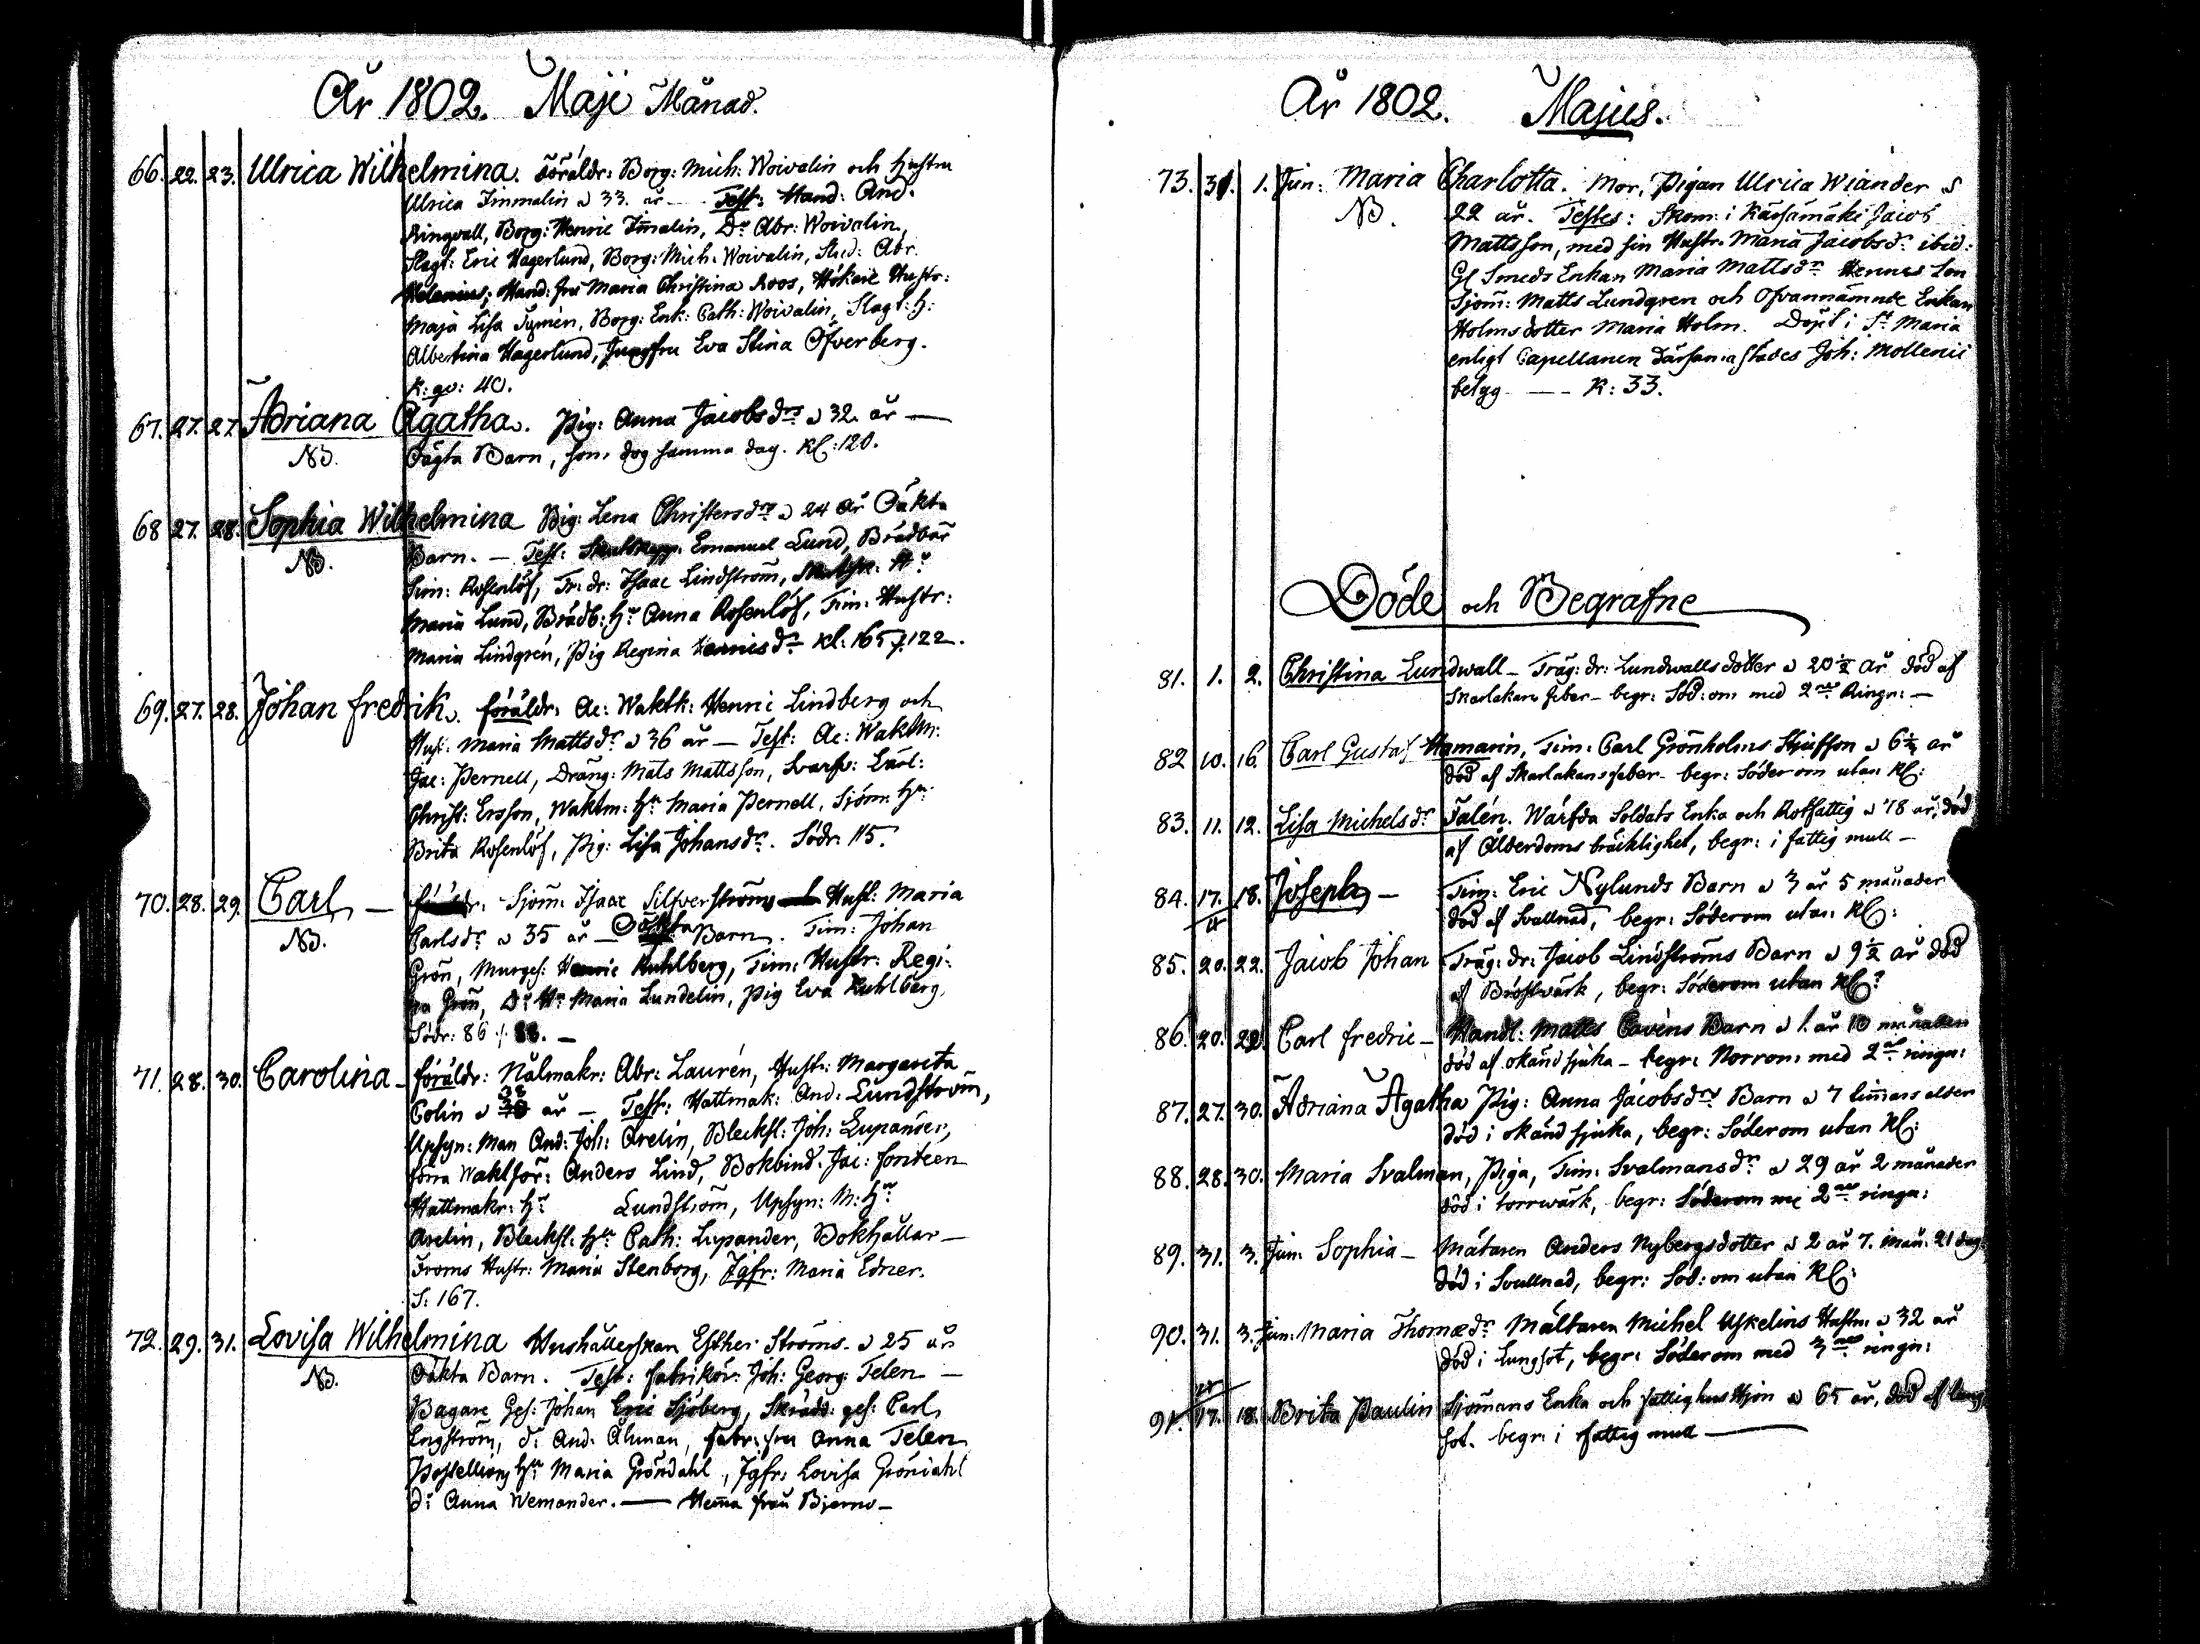 År 1802. Maji Månad.
66. 22. 23. Ulrica Wilhelmina. Föräldr: Borg: Mich: Woivalin och Hustru
Ulrica Immalin a 33. år — Test: Hand: And:
Ringvall, Borg: Henric Im̄alin, Dr Abr: Woivalin,
Slagt: Eric Hagerlund, Borg: Mich: Woivalin, Stud: Abr.
Helenius; Hand: fru Maria Christina Roos, Hökare Hustr:
Maja Lisa Tymén, Borg: Enk: Cath: Woivalin, Slagt: H:
Albertina Hagerlund, Jungfru Eva Stina Öfverberg.
K: qv: 40.
67. 27. 27. Adriana Agatha. Pig: Anna Jacobsdrs a 32. år —
NB. Oägta Barn, som dog samma dag. Kl: 120.
68 27. 28. Sophia Wilhelmina Pig: Lena Christersdrs a 24 år Oäkta
NB. Barn. — Test: Emanuel Lund, Brädbär
Sim: Rosenlöf, Tr: dr: Isaac Lindström,
Maria Lund, Brädb: Hu Anna Rosenlöf, Tim: Hustr:
Maria Lindgrén, Pig Regina dr Kl: 165 /: 122.
69. 27. 28. Johan fredrik. föräldr: Ac: Waktk: Henric Lindberg och
Hust: Maria Mattsdr a 36 år — Test: Ac: Waktm:
Jac: Pernell, Dräng: Mats Mattsson, Svarfv: Lärl:
Christ: Ersson, Waktm: Hu Maria Pernell, Sjöm: Hu
Brita Rosenlöf, Pig: Lisa Johansdr. Södr: 115.
70. 28. 29. Carl — Sjöm: Isaac Silfverströms Hust: Maria
NB. Carlsdr a 35 år — Oäkta Barn. Tim: Johan
Grön, Murges: Henric Kuhlberg, Tim: Hustr: Regi-
na Grön, Do Hu Maria Lundelin, Pig Eva Kuhlberg,
Södr: 86 /: 88. —
71. 28. 30. Carolina — föräldr: Nålmakr: Abr: Laurén, Hustr: Margareta
Colin a 38 år — Test: Hattmak: And: Lundström,
Upsyn: Man And: Joh: Arelin, Blecksl: Joh: Lupander,
förra Waktför: Anders Lind, Bokbind: Jac: fonteen
Hattmakr: Hu Lundström, Upsyn: M: Hu
Arelin, Blecksl: Hu Cath: Lupander, Bokhållar —
Froms Hustr: Maria Stenborg, Jgfr: Maria Edner.
S: 167.
72. 29. 31. Lovisa Wilhelmina Hushållerskan Esther Ströms a 25 års
NB. Oäkta Barn. Test: fabrikör: Joh: Georg: Telen —
Bagare Ges: Johan Eric Sjöberg, Skrädd: ges: Carl
Engström, d: And: Åhman, fabr: fru Anna Telen
Postellions Hu Maria Gröndahl, Jgfr: Lovisa Gröndahl
d: Anna Wemander. — Hem̄a från Bjerno —
År 1802. Majus.
73. 31. 1. Jun: Maria Charlotta. Mor, Pigan Ulrica Wiander a
NB. 22 år. Testes: Skom: i Kärsämäki Jacob
Mattsson, med sin Hustr: Maria Jacobsdr. ibid:
Gl Smeds Enkan Maria Mattsdr Hennes Son
Sjöm̄: Matts Lundgren och Ofvannämnde Enkan
Holms dotter Maria Holm. Döpt i St Maria
enligt Capellanen därsam̄astädes Joh: Mollenii
betyg — K: 33.
Döde och Begrafne
81. 1. 2. Christina Lundwall — Träg: dr: Lundwalls dotter a 20½ år död af
Skarlakans feber — begr: Söd: om med 2ne Ringn: —
82 10. 16. Carl Gustaf Hamarin, Tim: Carl Grönholms Stjufson a 6½ år
död af Skarlakansfeber — begr: Söderom utan Kl:
83. 11. 12. Lisa Michelsdr Talén. Wärfda Soldats Enka och Rotfattig a 78 år, död
af Ålderdoms bräcklighet, begr: i fattig mull —
84. 17. 18. Joseph — Tim: Eric Nylunds Barn a 3 år 5 månader
död af Svullnad, begr: Söderom utan Kl:
85. 20. 22. Jacob Johan Träg: dr: Jacob Lindströms Barn a 9½ år död
af Bröstwärk, begr: Söderom utan Kl:
86. 20. 22. Carl fredric — Handl: Matts Cavens Barn a 1. år 10 månader
död af okänd sjuka — begr: Norrom med 2ne ringn:
87. 27. 30. Adriana Agatha Pig: Anna Jacobsdrs Barn a 7 tim̄ars alder
död i okänd sjuka, begr: Söderom utan Kl:
88. 28. 30. Maria Svalman, Piga, Tim: Svalmansdr a 29 år 2 månader
död i torrwärk, begr: Söderom me 2ne ringn:
89. 31. 3. Jun: Sophia — Mätaren Anders Nybergsdotter a 2 år 7. mån: 21 dag:
död i Svullnad, begr: Söd: om utan Kl:
90. 31. 3. Jun: Maria Thomædr Mältaren Michel Uskelins Hustru a 32 år
död i Lungsot, begr: Söderom med 3ne ringn:
91. 17. 18. Brita Paulin Sjömans Enka och fattighus Hjon a 65 år, död af lung
sot. begr: i fattig mull —